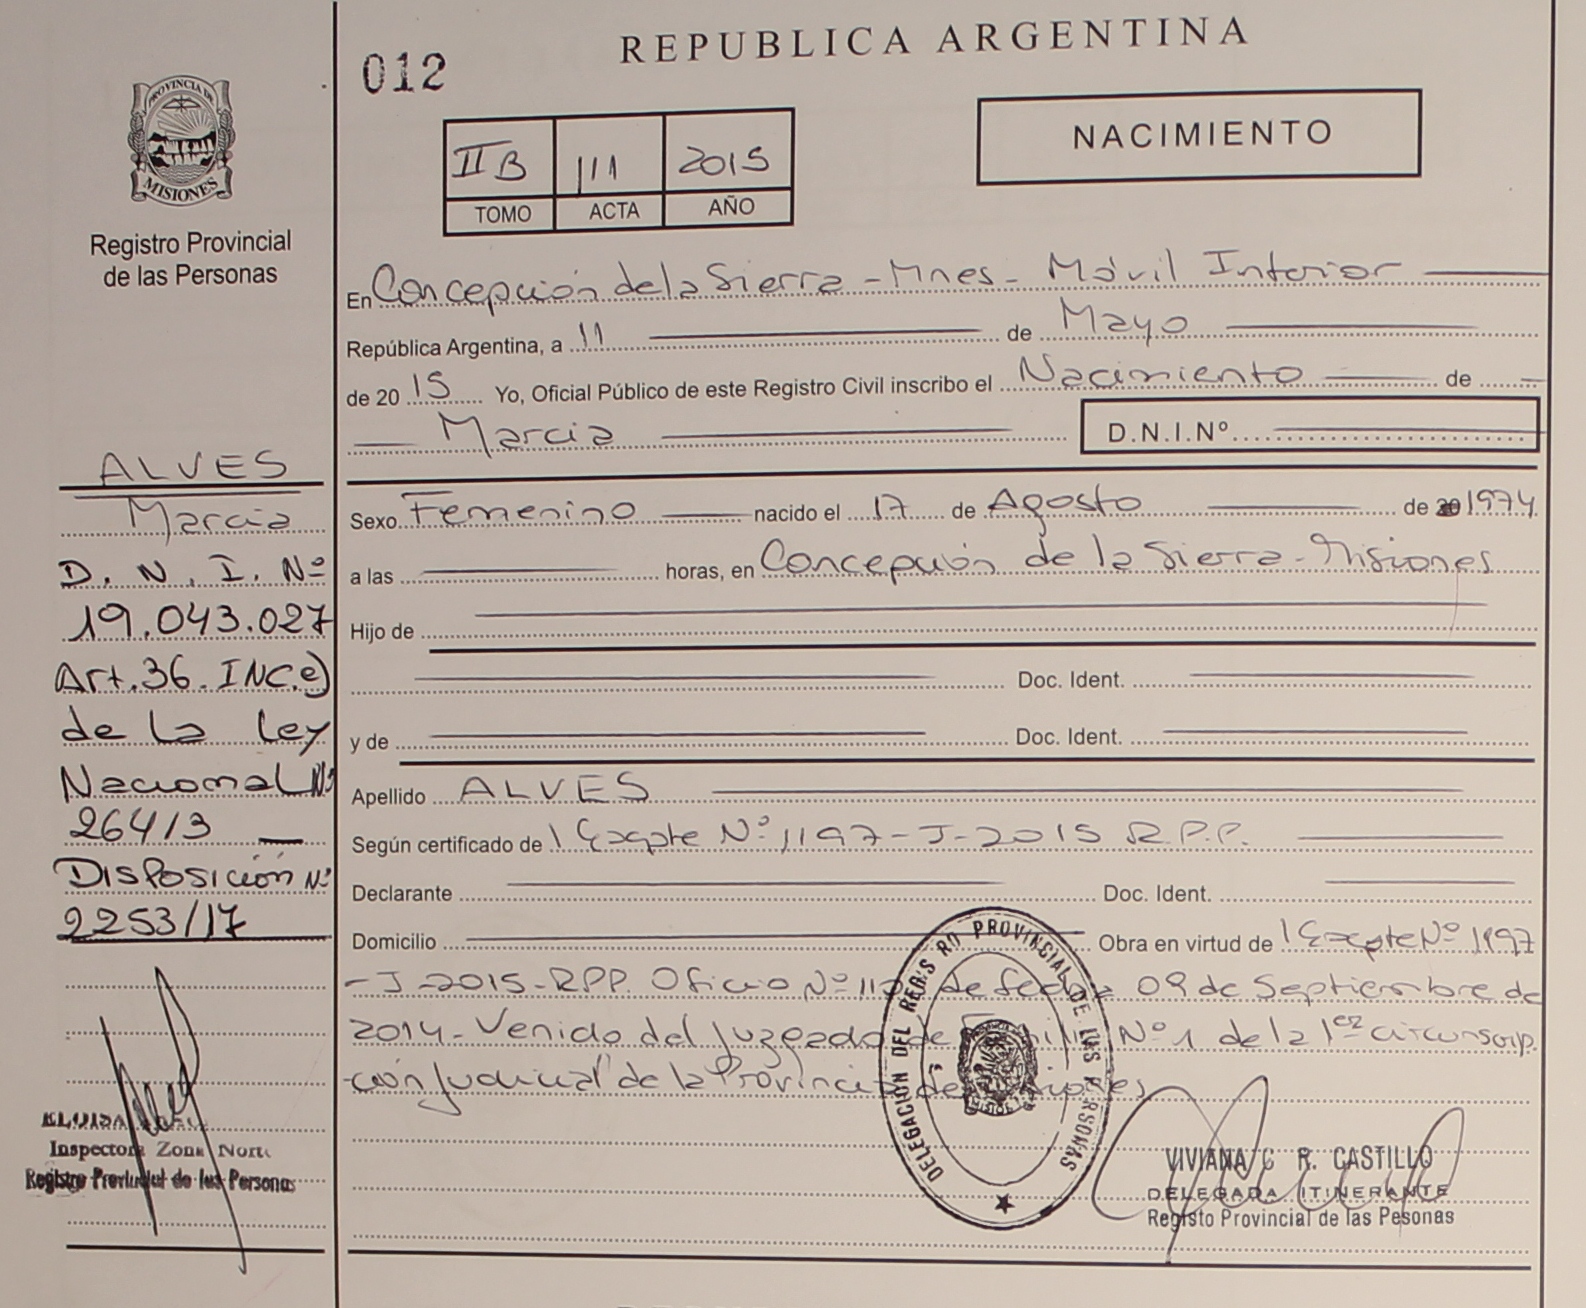 REPUBLICA ARGENTINA
012
NACIMIENTO
II B 111 2015
TOMO ACTA AÑO
PROVINCIA DE
MISIONES
Registro Provincial
de las Personas
En Concepción de la Sierra - Mnes - Móvil Interior
República Argentina, a 11 de Mayo
de 20 15 Yo, Oficial Público de este Registro Civil inscribo el Nacimiento de
Marcia D.N.I.Nº
Sexo Femenino nacido el 17 de Agosto de 1974
a las horas, en Concepción de la Sierra - Misiones
Hijo de
Doc. Ident.
y de Doc. Ident.
Apellido ALVES
Según certificado de Expte Nº 1197-J-2015 R.P.P.
Declarante Doc. Ident.
Domicilio Obra en virtud de Expte Nº 1197
-J-2015-RPP. Oficio Nº de fecha 09 de Septiembre de
2014 - Venido del Juzgado de Familia Nº 1 de la 1era circunscrip
ción Judicial de la Provincia de Misiones
DELEGACION DEL REGISTRO PROVINCIAL DE LAS PERSONAS
VIVIANA C R. CASTILLO
DELEGADA ITINERANTE
Registo Provincial de las Pesonas
ALVES
Marcia
D. N. I. Nº
19.043.027
Art. 36. INC.e)
de la ley
Nacional Nº
26413
Disposición Nº
2253/17
ELOISA
Inspectora Zona Norte
Registro Provincial de las Personas